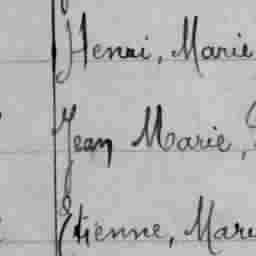 Henri, Marie
Jean Marie,
Etienne, Mari